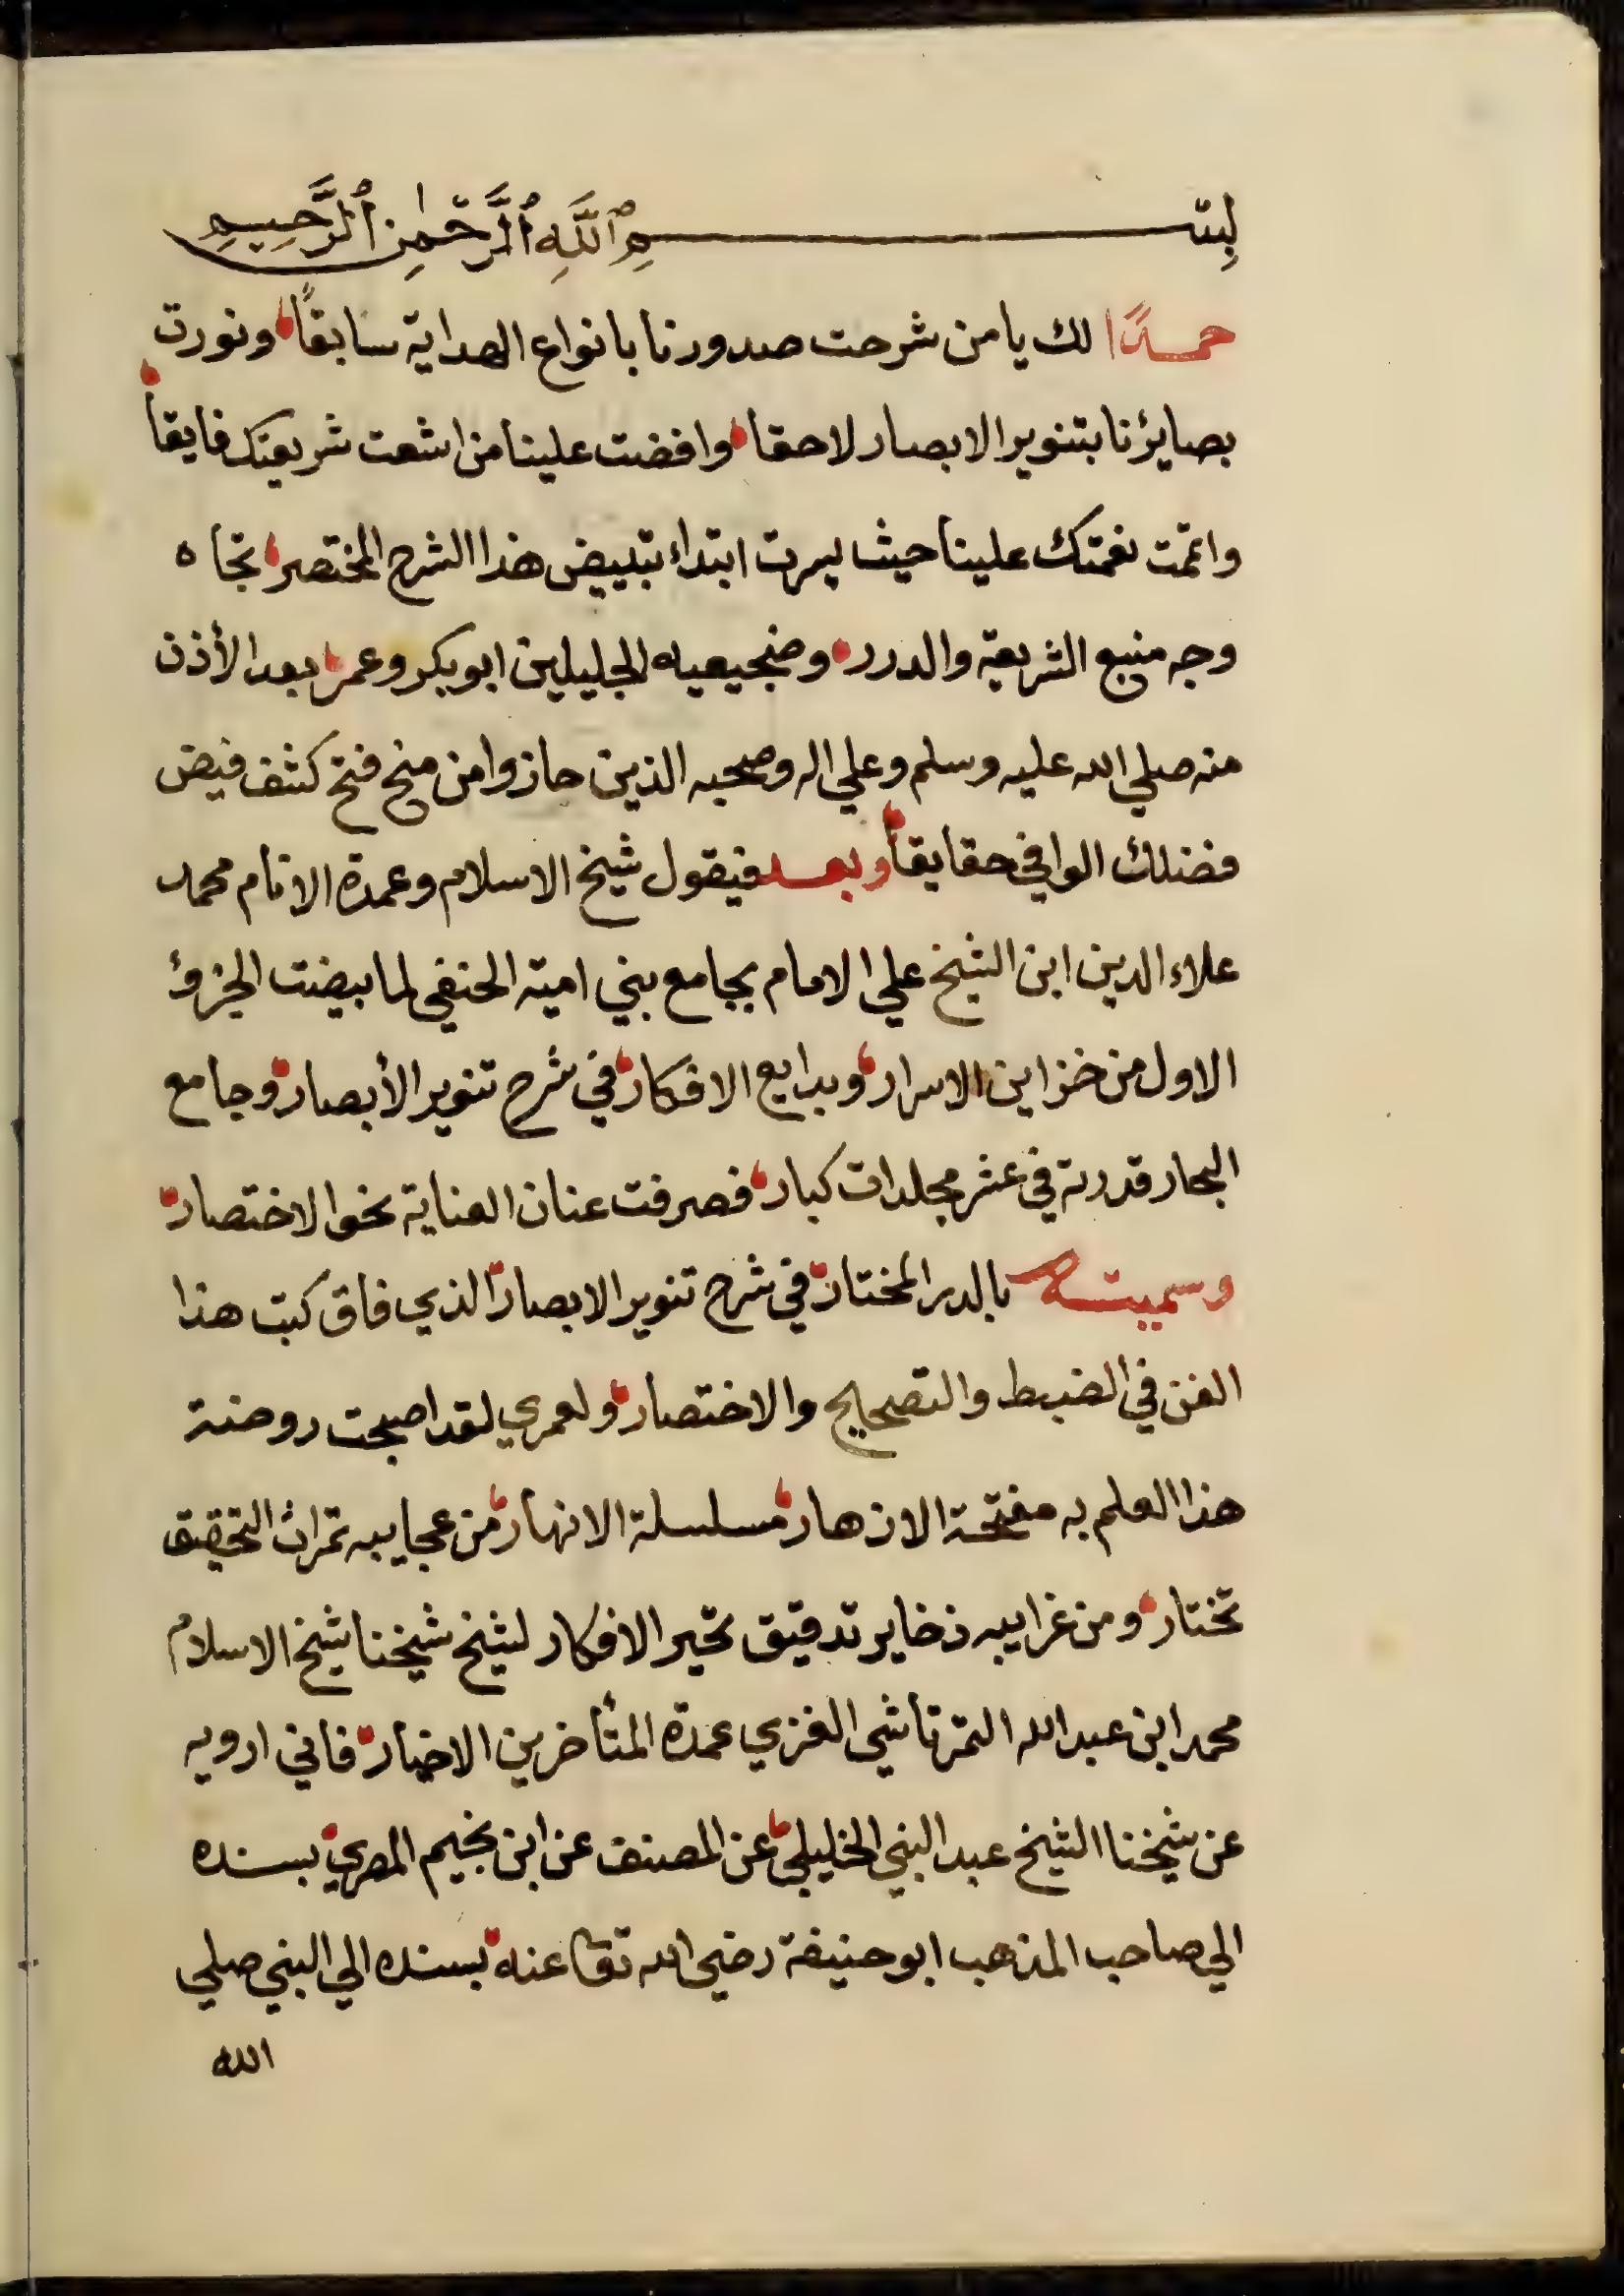 بِسْمِ ٱللَّهِ ٱلرَّحْمٰنِ ٱلرَّحِيمِ
حمدًا لك يا من شرحت صدورنا بانواع الهداية سابقًا ونورت
بصايرنا بتنوير الابصار لاحقا وافضت علينا من اشعت شريعتك فايقا
واتممت نعمتك علينا حيث يسرت ابتداء تبييض هذا الشرح المختصر تجاه
وجه منبع الشريعة والدرر وضجيعيه الجليلين ابو بكر وعمر بعد الأذن
منه صلي الله عليه وسلم وعلي اله وصحبه الذين حازوا من منح فتح كشف فيض
فضلك الوافي حقايقا وبعد فيقول شيخ الاسلام وعمدة الانام محمد
علاء الدين ابن الشيخ علي الامام بجامع بني امية الحنفي لما بيضت الجزؤ
الاول من خزاين الاسرار وبدايع الافكار في شرح تنوير الأبصار وجامع
البحار قدرته في عشر مجلدات كبار فصرفت عنان العناية نحو الاختصار
وسميته بالدر المختار في شرح تنوير الابصار الذي فاق كتب هذا
الفن في الضبط والتصحيح والاختصار ولعمري لقد اصبحت روضة
هذا العلم به مفتحة الازهار مسلسلة الانهار من عجايبه ثمرات التحقيق
تختار ومن غرايبه ذخاير تدقيق تحير الافكار لشيخ شيخنا شيخ الاسلام
محمد ابن عبد الله التمرتاشي الغزي عمدة المتأخرين الاخيار فاني ارويه
عن شيخنا الشيخ عبد النبي الخليلي عن المصنف عن ابن نجيم المصري بسنده
الي صاحب المذهب ابو حنيفة رضي الله تعا عنه بسنده الي النبي صلي
الله